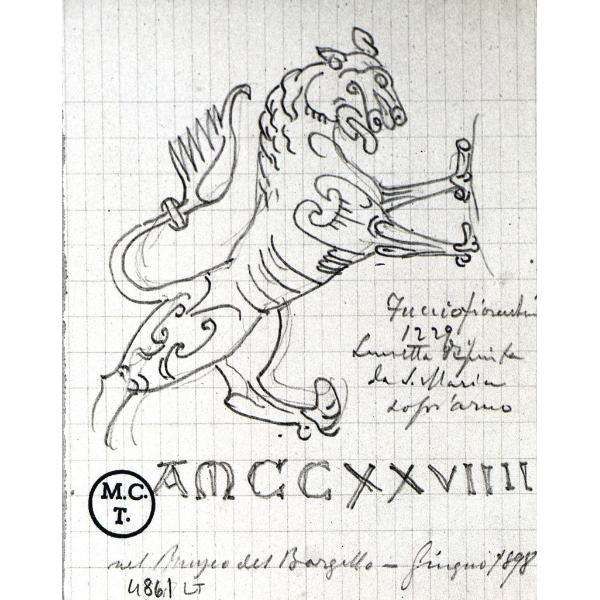 1229
Lunetta dipinta
da S. Maria
sopr'arno
AMCCXXVIIII
M.C.
T.
nel Museo del Bargello – Giugno 1898
4861 LT